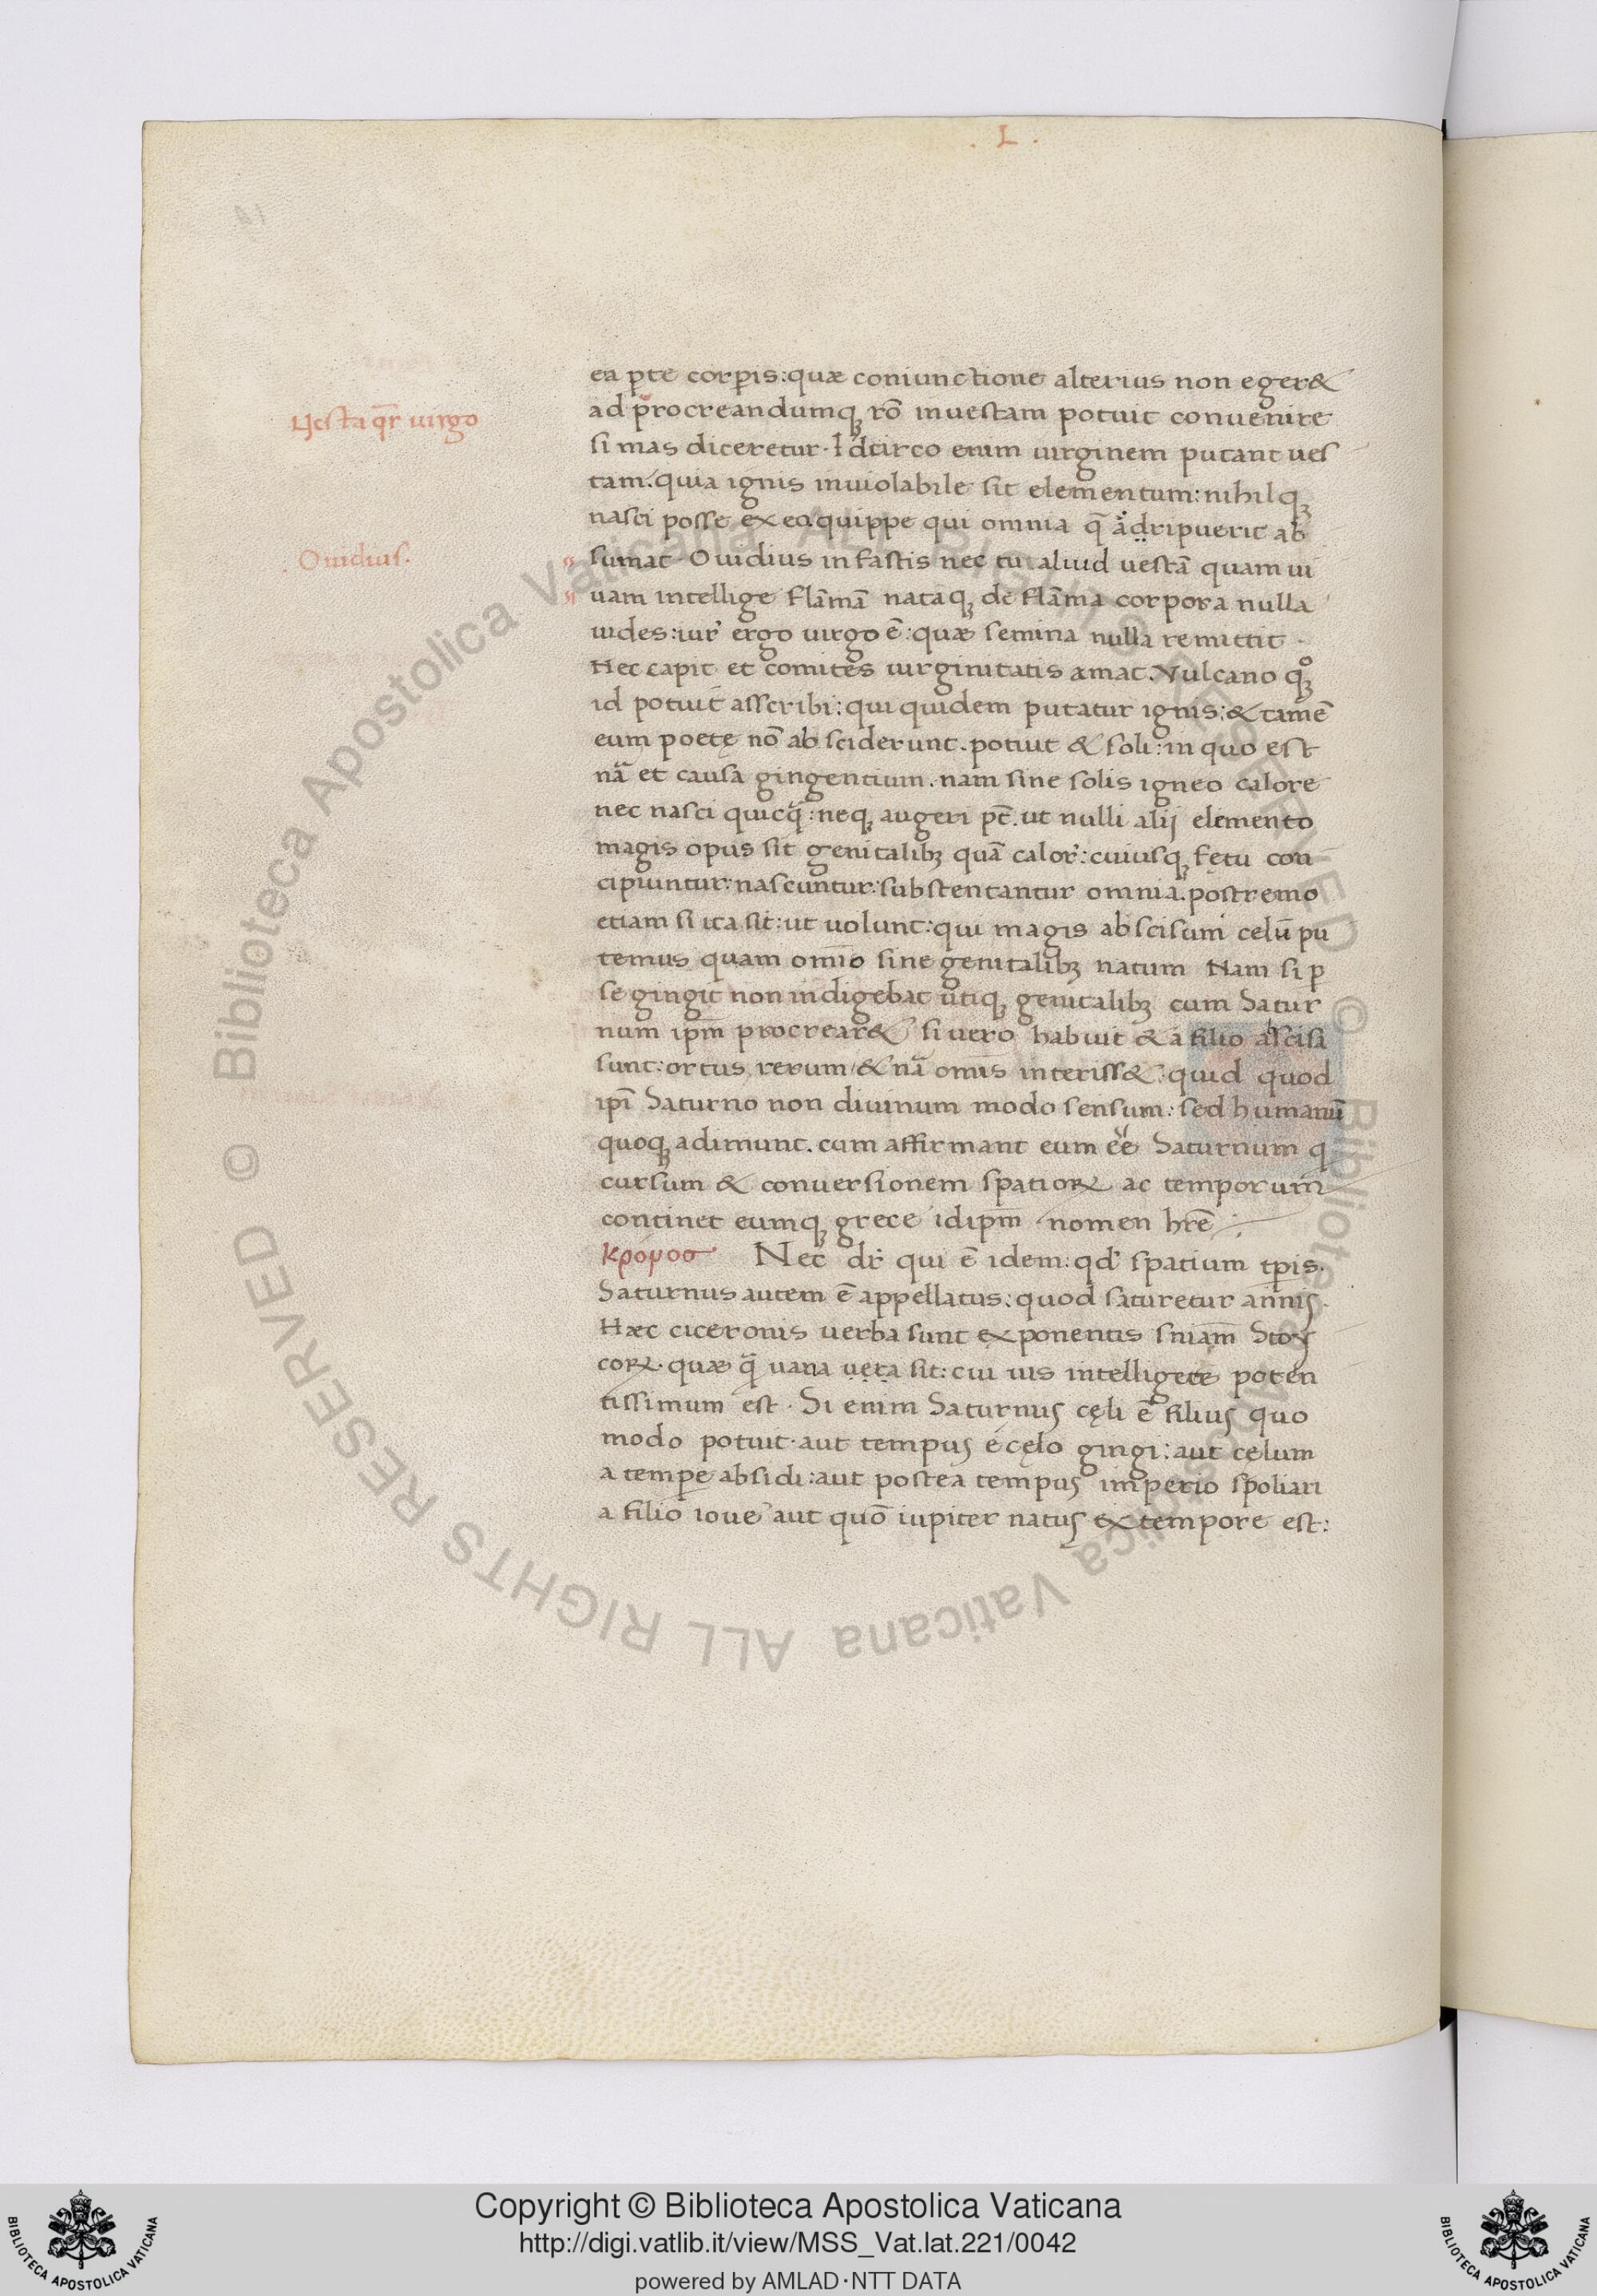 . L .
ea ꝑte corꝑis: quæ coniunctione alterius non eger&
Vesta qr̄ virgo
ad procreandumqꝫ rō in uestam potuit conuenire
si mas diceretur. Idcirco enim uirginem putant ues
tam. quia ignis inuiolabile sit elementum: nihilqꝫ
nasci posse ex eo. quippe qui omnia q̄ adripuerit ab
Ouidius.
sumat. Ouidius in fastis nec tu aliud uestā quam ui
uam intellige flāmā nataqꝫ de flāma corpora nulla
uides: iur̄ ergo uirgo ē: quæ semina nulla remittit.
Nec capit et comites uirginitatis amat. Vulcano qꝫ
id potuit asscribi: qui quidem putatur ignis: & tamē
eum poetę nō absciderunt. potuit & soli: in quo est
nā et causa gingentium. nam sine solis igneo calore
nec nasci quicq̄: neqꝫ augeri pt̄. ut nulli alij elemento
magis opus sit genitalibꝫ quā calor̄: cuiusqꝫ fętu con
cipiuntur: nascuntur: substentantur omnia. postremo
etiam si ita sit: ut uolunt: qui magis abscisum celū pu
temus quam omīo sine genitalibꝫ natum Nam si ꝑ
se gingit non indigebat utiqꝫ genitalibꝫ cum Satur
num ip̄m procrear& si uero habuit & a filio abscisa
sunt: ortus rerum & nā omīs interiss&: quid quod
ip̄i Saturno non diuinum modo sensum: sed humanū
quoqꝫ adimunt. cum affirmant eum eē Saturnum q
cursum & conuersionem spatioꝝ ac temporum
continet eumqꝫ grece id ip̄m nomen hr̄e:
κρόνοσ Nec dr̄ qui ē idem: qd̄ spatium tꝑis.
Saturnus autem ē appellatus: quod saturetur annis.
Hæc ciceronis uerba sunt exponentis sniam̄ Stoy
coꝝ. quæ q̄ uana uera sit: cui uis intelligere poten
tissimum est. Si enim Saturnus cęli ē filius quo
modo potuit. aut tempus e cęlo gingi: aut cęlum
a tempe absidi: aut postea tempus imperio spoliari
a filio ioue aut quō iupiter natus ex tempore est:
Copyright © Biblioteca Apostolica Vaticana
http://digi.vatlib.it/view/MSS_Vat.lat.221/0042
powered by AMLAD·NTT DATA